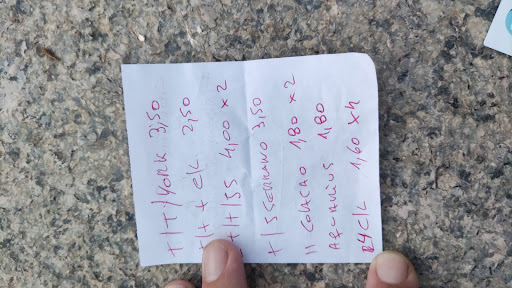 T/T/YORK 3,50
T/T + C/L 2,50
T/T/SS 4,00 x 2
T/SSERRANO 3,50
11 COLACAO 1,80 x 2
AQUARIUS 1,80
C/L 1,60 x 4